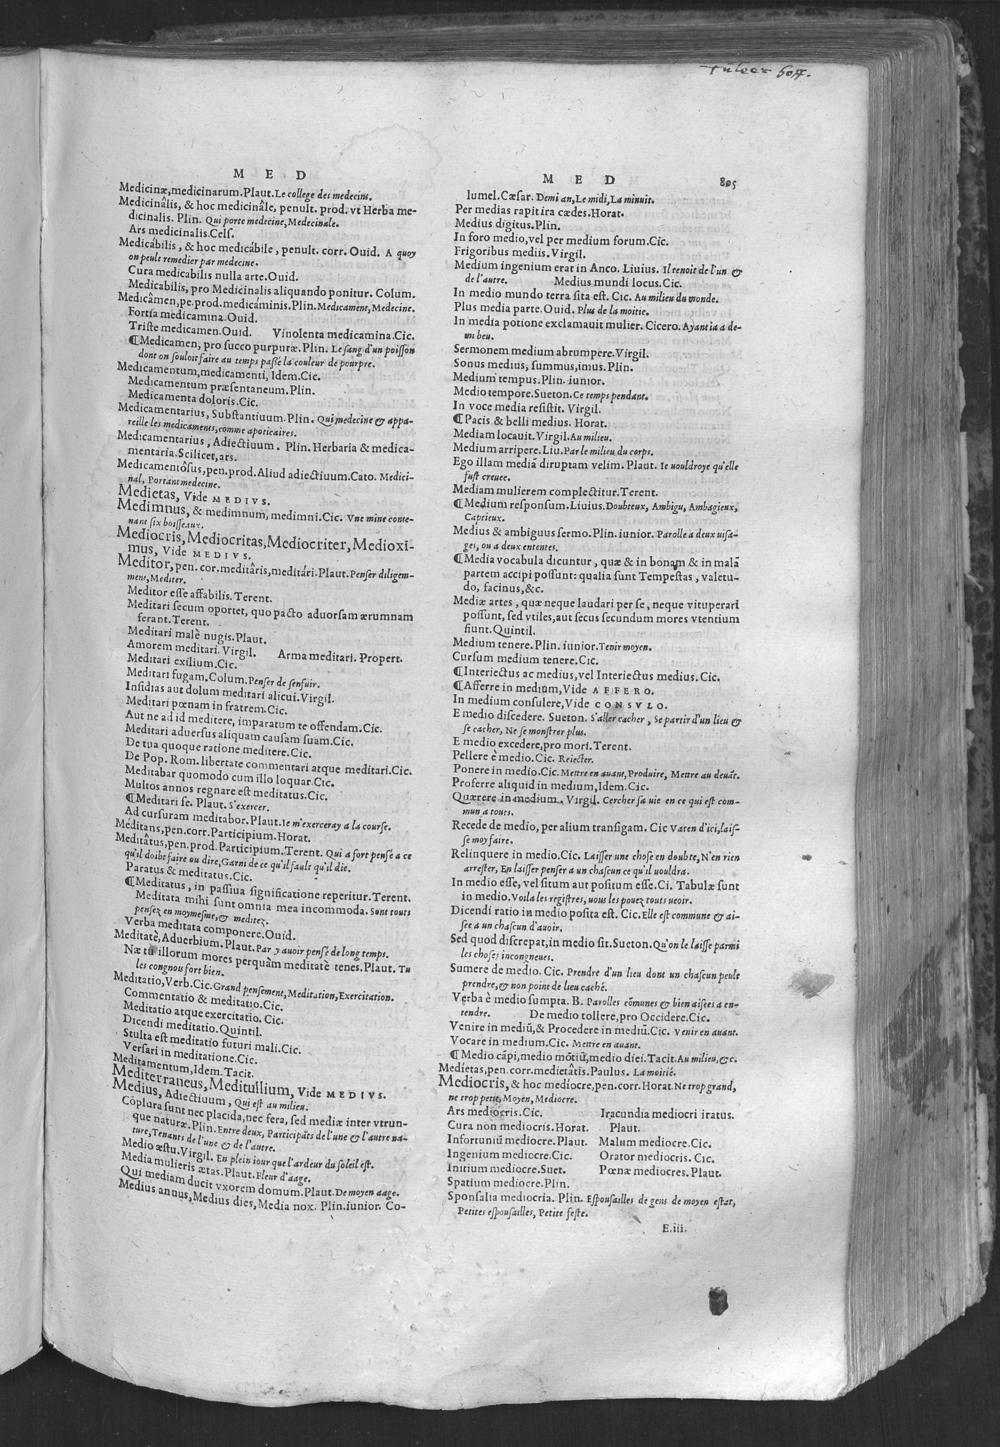 M E D
Medicinæ,medicinarum.Plaut.Le college des medecins.
Medicinâlis, & hoc medicinâle, penult. prod. vt Herba me-
dicinalis. Plin. Qui porte medecine, Medecinale.
Ars medicinalis.Cels.
Medicábilis, & hoc medicábile, penult. corr. Ouid. A quoy
on peult remedier par medecine.
Cura medicabilis nulla arte.Ouid.
Medicabilis, pro Medicinalis aliquando ponitur. Colum.
Medicâmen,pe.prod.medicáminis.Plin.Medicament,Medecine.
Fortia medicamina.Ouid.
Triste medicamen.Ouid. Vinolenta medicamina.Cic.
¶Medicamen, pro succo purpuræ.Plin. Le sang d'un poisson
dont on souloit faire au temps passé la couleur de pourpre.
Medicamentum,medicamenti, Idem.Cic.
Medicamentum præsentaneum.Plin.
Medicamenta doloris.Cic.
Medicamentarius, Substantiuum.Plin. Qui medecine & appa-
reille les medicaments,comme apoticaires.
Medicamentarius, Adiectiuum. Plin. Herbaria & medica-
mentaria.Scilicet,ars.
Medicamentôsus,pen.prod.Aliud adiectiuum.Cato. Medici-
nal, Portant medecine.
Medietas, Vide MEDIVS.
Medimnus, & medimnum, medimni.Cic. Vne mine conte-
nant six boisseaux.
Mediocris, Mediocritas,Mediocriter, Medioxi-
mus, Vide MEDIVS.
Meditor,pen.cor.meditâris,meditári.Plaut.Penser diligem-
ment,Mediter.
Meditor esse affabilis.Terent.
Meditari secum oportet, quo pacto aduorsam ærumnam
ferant.Terent.
Meditari malè nugis.Plaut.
Amorem meditari. Virgil. Arma meditari. Propert.
Meditari exilium.Cic.
Meditari fugam.Colum.Penser de senfuir.
Insidias aut dolum meditari alicui.Virgil.
Meditari pœnam in fratrem.Cic.
Aut ne ad id meditere, imparatum te offendam.Cic.
Meditari aduersus aliquam causam suam.Cic.
De tua quoque ratione meditere.Cic.
De Pop. Rom.libertate commentari atque meditari.Cic.
Meditabar quomodo cum illo loquar.Cic.
Multos annos regnare est meditatus.Cic.
¶Meditari se. Plaut. S'exercer.
Ad cursuram meditabor.Plaut.Ie m'exerceray a la course.
Méditans,pen.corr.Participium.Horat.
Meditâtus,pen.prod.Participium.Terent. Qui a fort pensé a ce
qu'il doibt faire ou dire,Garni de ce qu'il fault qu'il die.
Paratus & meditatus.Cic.
¶Meditatus, in passiua significatione reperitur.Terent.
Meditata mihi sunt omnia mea incommoda. Sont touts
pensez en moymesme,& meditez.
Verba meditata componere.Ouid.
Meditatè, Aduerbium.Plaut.Par y auoir pensé de long temps.
Næ tu illorum mores perquàm meditatè tenes.Plaut. Tu
les congnou fort bien.
Meditatio,Verb.Cic.Grand pensement,Meditation,Exercitation.
Commentatio & meditatio.Cic.
Meditatio atque exercitatio. Cic.
Dicendi meditatio.Quintil.
Stulta est meditatio futuri mali.Cic.
Versari in meditatione.Cic.
Meditamentum,Idem.Tacit.
Mediterraneus, Meditullium, Vide MEDIVS.
Medius, Adiectiuum, Qui est au milieu.
Cōplura sunt nec placida,nec fera, sed mediæ inter vtrun-
que naturæ.Plin.Entre deux, Participāts de l'une & l'autre na-
ture,Tenants de l'une & de l'autre.
Medio æstu.Virgil.En plein iour que l'ardeur du soleil est.
Media mulieris ætas.Plaut.Fleur d'aage.
Qui mediam ducit vxorem domum.Plaut.De moyen aage.
Medius annus,Medius dies,Media nox. Plin.iunior. Co-
M E D 805
lumel.Cæsar. Demi an,Le midi,La minuit.
Per medias rapit ira cædes.Horat.
Medius digitus.Plin.
In foro medio,vel per medium forum.Cic.
Frigoribus mediis.Virgil.
Medium ingenium erat in Anco. Liuius. Il tenoit de l'un &
de l'autre. Medius mundi locus.Cic.
In medio mundo terra sita est. Cic. Au milieu du monde.
Plus media parte.Ouid. Plus de la moitie.
In media potione exclamauit mulier. Cicero. Ayant ia a de-
mi beu.
Sermonem medium abrumpere.Virgil.
Sonus medius, summus,imus.Plin.
Medium tempus.Plin. iunior.
Medio tempore.Sueton.Ce temps pendant.
In voce media resistit. Virgil.
¶Pacis & belli medius. Horat.
Mediam locauit.Virgil.Au milieu.
Medium arripere.Liu.Par le milieu du corps.
Ego illam mediā diruptam velim. Plaut. Ie uouldroye qu'elle
fust creuee.
Mediam mulierem complectitur.Terent.
¶Medium responsum.Liuius.Doubteux, Ambigu, Ambagieux,
Caprieux.
Medius & ambiguus sermo.Plin. iunior. Parolle a deux uisa-
ges, ou a deux ententes.
¶Media vocabula dicuntur, quæ & in bonam & in malā
partem accipi possunt: qualia sunt Tempestas, valetu-
do, facinus,&c.
Mediæ artes, quæ neque laudari per se, neque vituperari
possunt, sed vtiles,aut secus secundum mores vtentium
fiunt.Quintil.
Medium tenere.Plin. iunior.Tenir moyen.
Cursum medium tenere.Cic.
¶Interiectus ac medius,vel Interiectus medius. Cic.
¶Afferre in medium,Vide AFFERO.
In medium consulere,Vide CONSVLO.
E medio discedere. Sueton. S'aller cacher, Se partir d'un lieu &
se cacher, Ne se monstrer plus.
E medio excedere,pro mori.Terent.
Pellere è medio.Cic. Reiecter.
Ponere in medio.Cic.Mettre en auant,Produire, Mettre au deuāt.
Proferre aliquid in medium,Idem.Cic.
Quærere in medium. Virgil. Cercher sa uie en ce qui est com-
mun a touts.
Recede de medio,per alium transigam. Cic Vaten d'ici,lais-
se moy faire.
Relinquere in medio.Cic. Laisser une chose en doubte,N'en rien
arrester, En laisser penser a un chascun ce qu'il uouldra.
In medio esse,vel situm aut positum esse.Ci. Tabulæ sunt
in medio.Voila les registres, uous les pouez touts ueoir.
Dicendi ratio in medio posita est. Cic.Elle est commune & ai-
see a un chascun d'auoir.
Sed quod discrepat,in medio sit.Sueton.Qu'on le laisse parmi
les choses incongneues.
Sumere de medio. Cic. Prendre d'un lieu dont un chascun peult
prendre,& non point de lieu caché.
Verba è medio sumpta. B. Parolles cōmunes & bien aisees a en-
tendre. De medio tollere,pro Occidere.Cic.
Venire in mediū,& Procedere in mediū.Cic. Venir en auant.
Vocare in medium.Cic. Mettre en auant.
¶Medio cāpi,medio mōtiū,medio diei.Tacit.Au milieu,&c.
Medietas,pen.corr.medietâtis.Paulus. La moitié.
Mediocris, & hoc mediocre,pen.corr.Horat.Ne trop grand,
ne trop petit, Moyen, Mediocre.
Ars mediocris.Cic. Iracundia mediocri iratus.
Cura non mediocris.Horat. Plaut.
Infortuniū mediocre.Plaut. Malum mediocre.Cic.
Ingenium mediocre.Cic. Orator mediocris. Cic.
Initium mediocre.Suet. Pœnæ mediocres.Plaut.
Spatium mediocre.Plin.
Sponsalia mediocria. Plin. Espousailles de gens de moyen estat,
Petites espousailles, Petite feste.
E.iii.